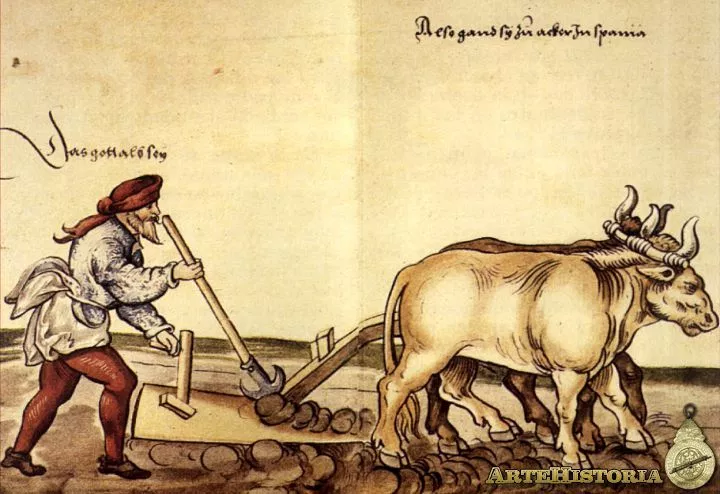 Also gand sy zu acker In spania
Das gott als sey
ARTEHISTORIA